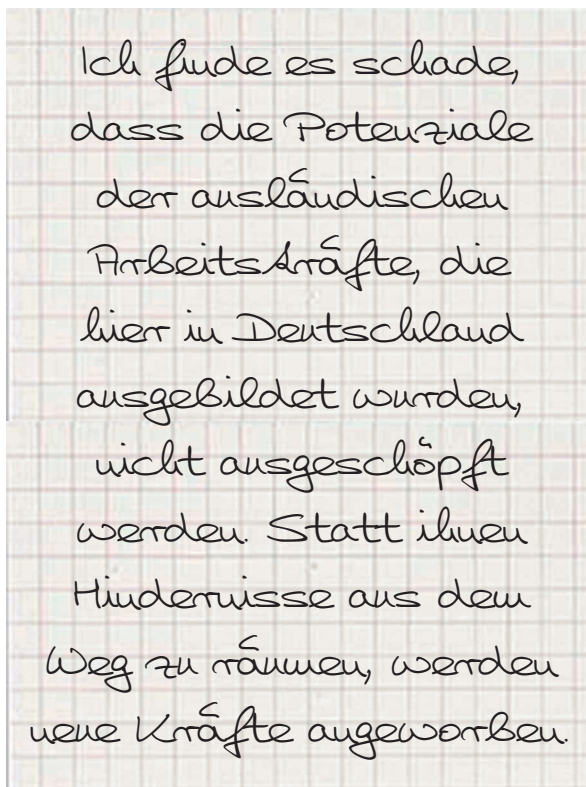 Ich finde es schade,
dass die Potenziale
der ausländischen
Arbeitskräfte, die
hier in Deutschland
ausgebildet wurden,
nicht ausgeschöpft
werden. Statt ihnen
Hindernisse aus dem
Weg zu räumen, werden
neue Kräfte angeworben.